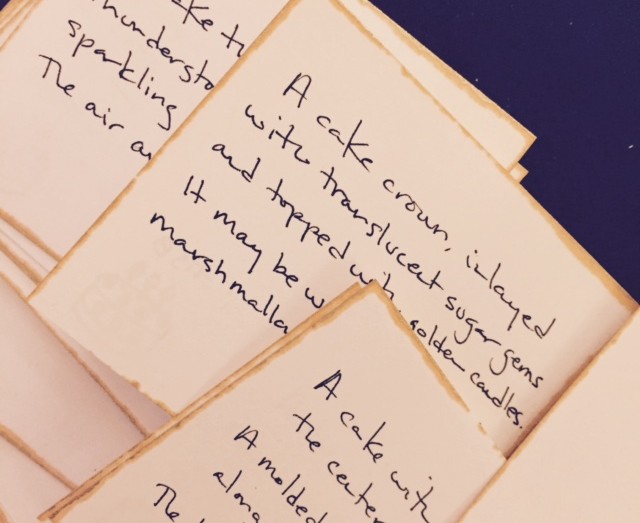 thundersto
sparkling
The air
A cake crown, inlayed
with translucent sugar gems
and topped with golden candles.
It may be w
marshmallo
A cake with
the center
A molded
along
The